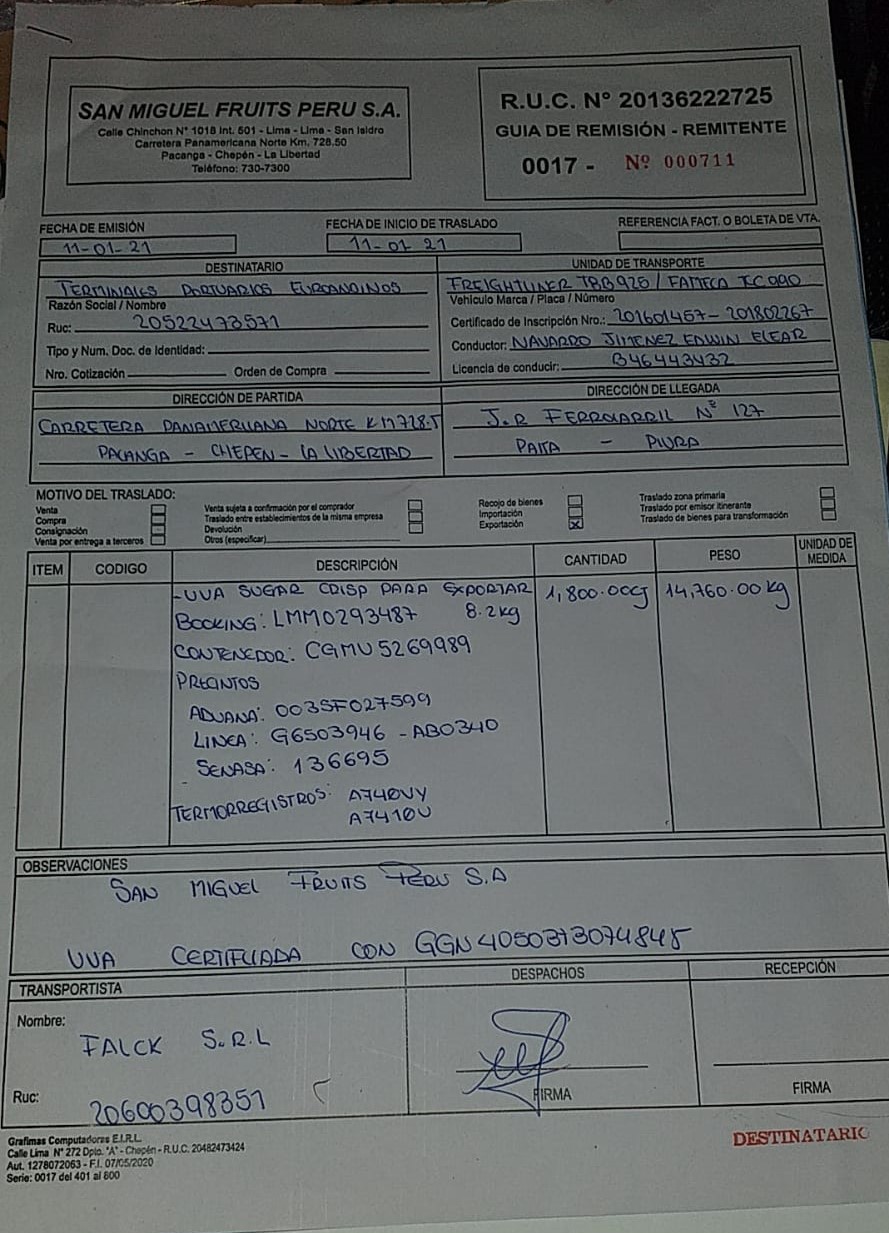 SAN MIGUEL FRUITS PERU S.A.
Calle Chinchon N° 1018 Int. 501 - Lima - Lima - San Isidro
Carretera Panamericana Norte Km. 728.50
Pacanga - Chepén - La Libertad
Teléfono: 730-7300
R.U.C. N° 20136222725
GUIA DE REMISIÓN - REMITENTE
0017 - Nº 000711
FECHA DE EMISIÓN
11-01-21
FECHA DE INICIO DE TRASLADO
11-01-21
REFERENCIA FACT. O BOLETA DE VTA.
DESTINATARIO
TERMINALES PORTUARIOS EUROANDINOS
Razón Social / Nombre
Ruc: 20522473571
Tipo y Num. Doc. de Identidad:
Nro. Cotización Orden de Compra
UNIDAD DE TRANSPORTE
FREIGHTLINER T8B926 / FAMECA TCO90
Vehiculo Marca / Placa / Número
Certificado de Inscripción Nro.: 201601457- 201802267
Conductor: NAVARRO JIMENEZ EDWIN ELEAR
Licencia de conducir: B46443432
DIRECCIÓN DE PARTIDA
CARRETERA PANAMERICANA NORTE KM728.5
PACANGA - CHEPEN - LA LIBERTAD
DIRECCIÓN DE LLEGADA
J.R FERROCARRIL Nº 127
PAITA - PIURA
MOTIVO DEL TRASLADO:
Venta
Compra
Consignación
Venta por entrega a terceros
Venta sujeta a confirmación por el comprador
Traslado entre establecimientos de la misma empresa
Devolución
Otros (especificar)
Recojo de bienes
Importación
Exportación X
Traslado zona primaria
Traslado por emisor itinerante
Traslado de bienes para transformación
ITEM CODIGO DESCRIPCIÓN CANTIDAD PESO UNIDAD DE MEDIDA
-UVA SUGAR CRISP PARA EXPORTAR 1,800.00CJ 14,760.00 kg
BOOKING: LMM0293487 8.2kg
CONTENEDOR: CGMU 5269989
PRECINTOS
ADUANA: 003SF027599
LINEA: G6503946 - AB0340
SENASA: 136695
TERMORREGISTROS: A740VY
A7410U
OBSERVACIONES
SAN MIGUEL FRUITS PERU S.A
UVA CERTIFICADA CON GGN 4050373074845
TRANSPORTISTA
Nombre:
FALCK S.R.L
Ruc: 20600398351
DESPACHOS
FIRMA
RECEPCIÓN
FIRMA
Grafimas Computadoras E.I.R.L.
Calle Lima N° 272 Dpto. "A" - Chepén - R.U.C. 20482473424
Aut. 1278072063 - F.I. 07/05/2020
Serie: 0017 del 401 al 800
DESTINATARIO